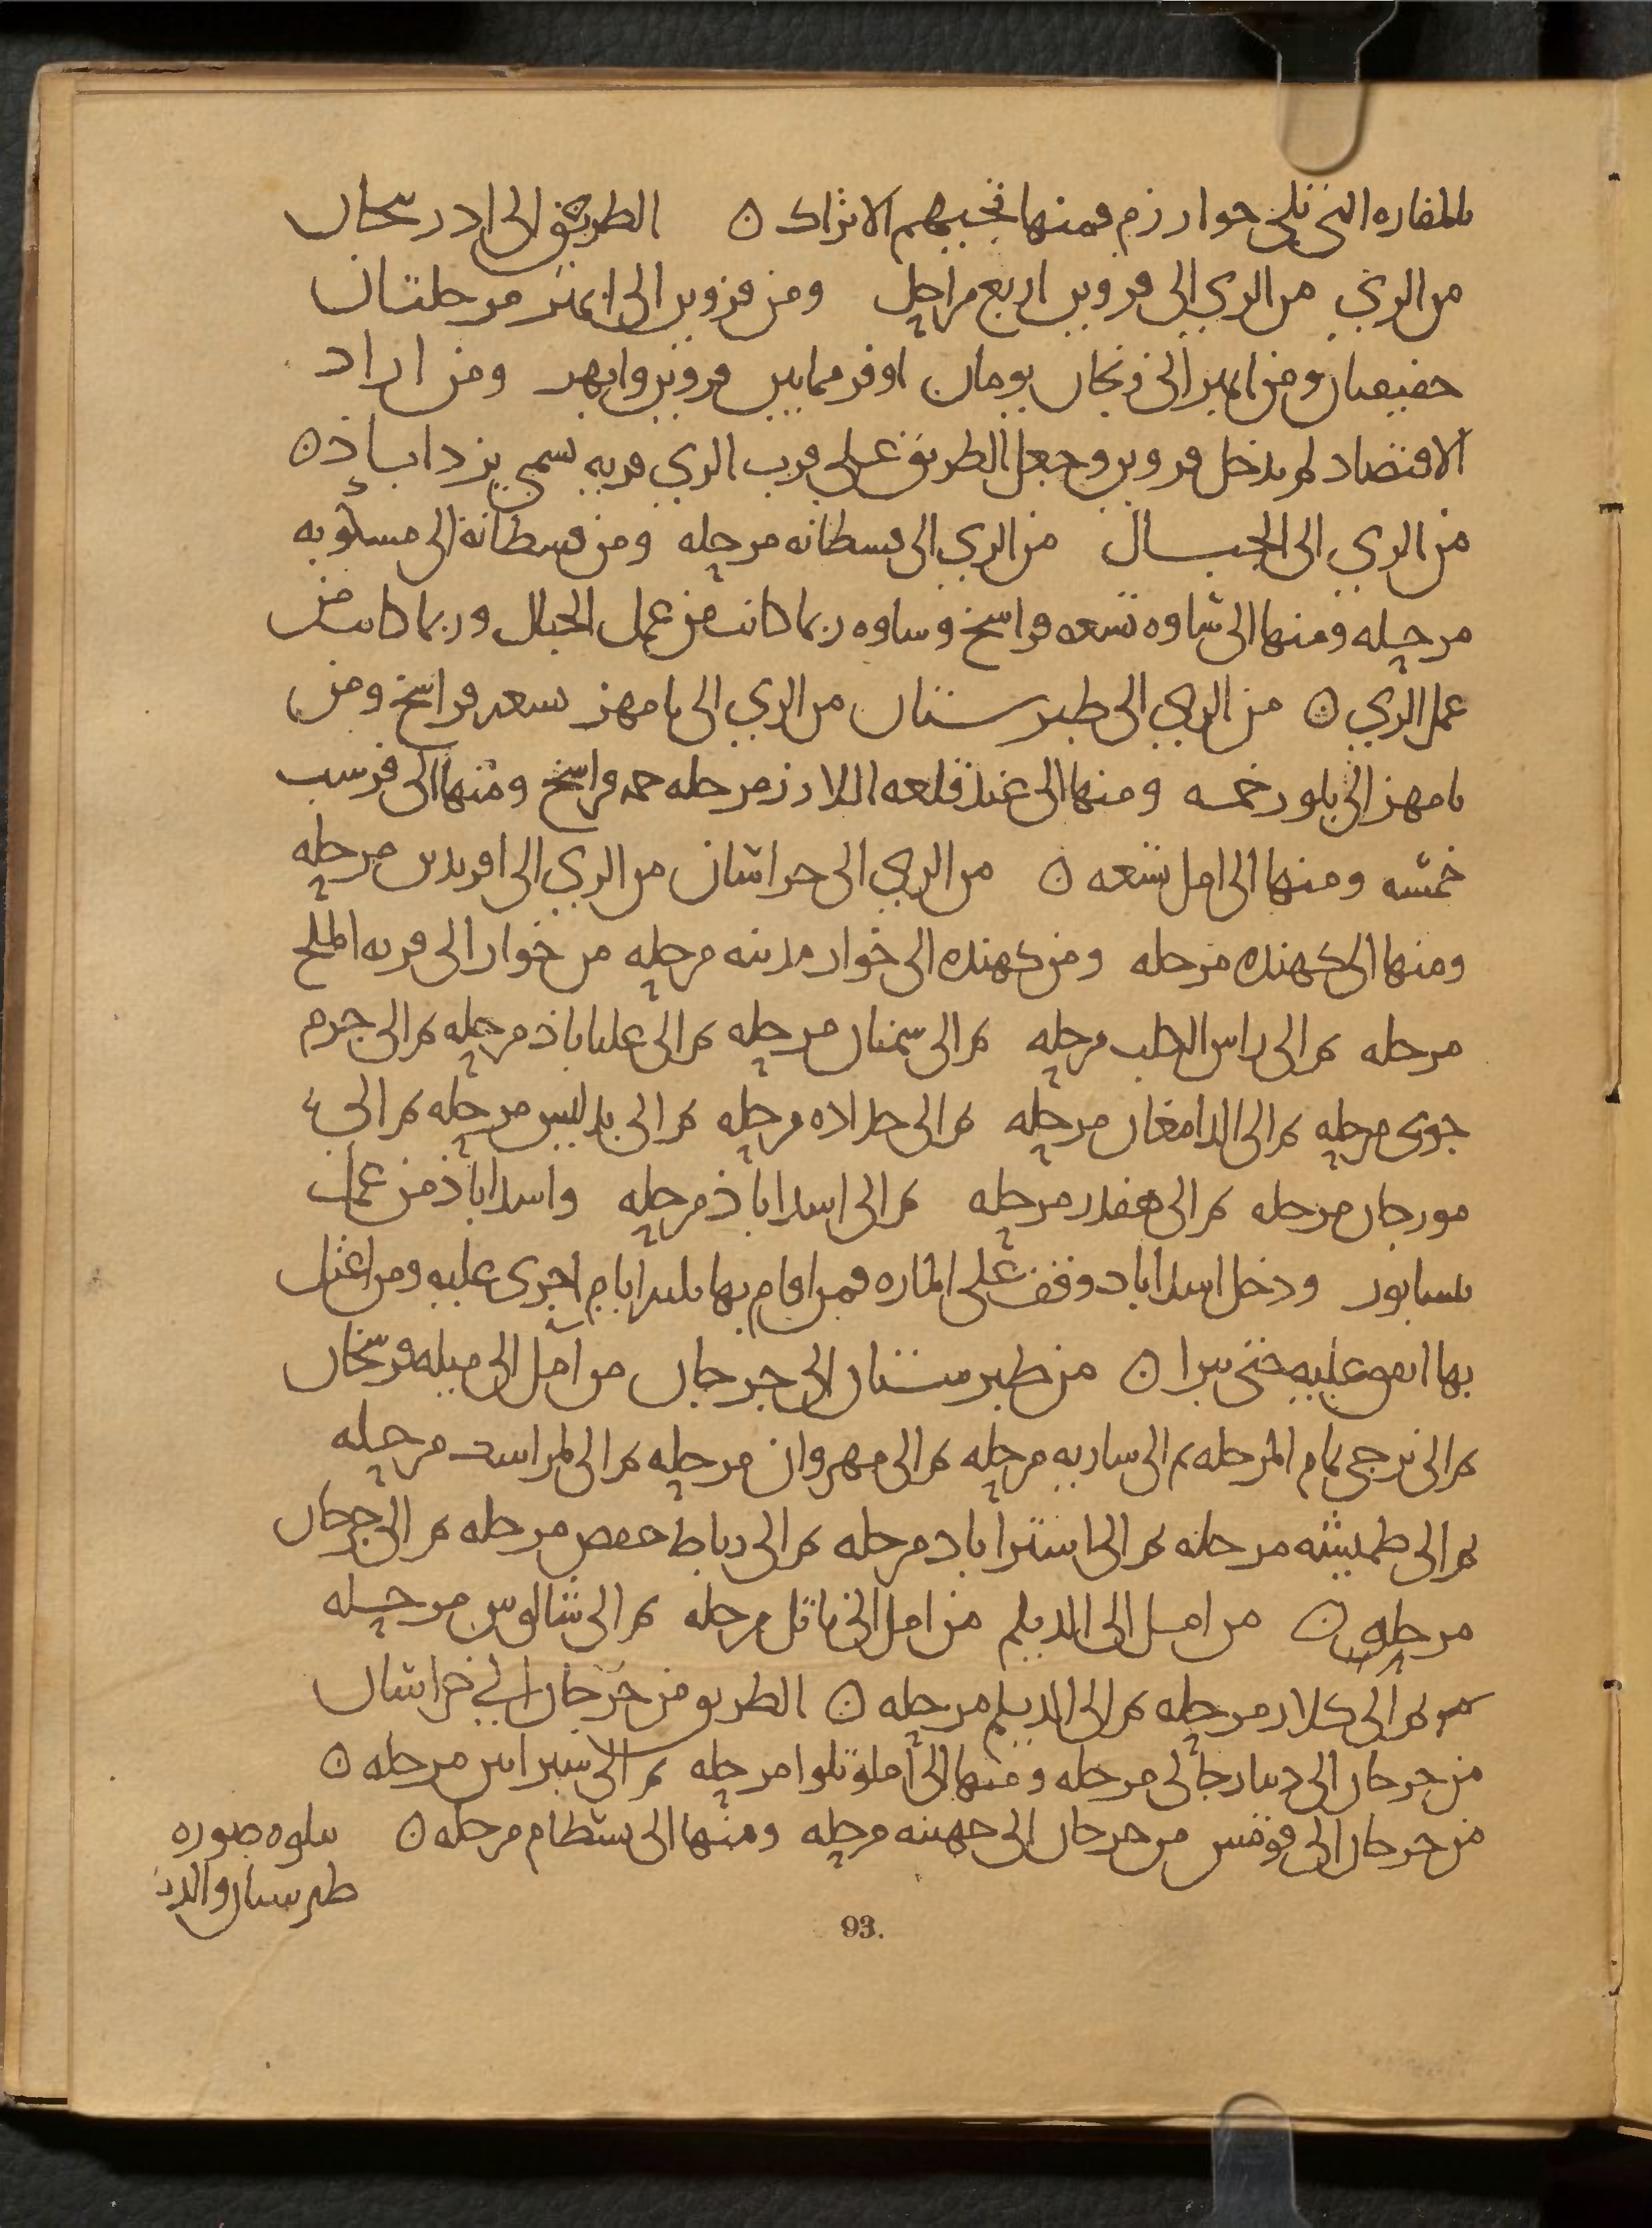 بالمفازه التي تلي خوارزم فمنها تجيبهم الاتراك ن الطريق الى ادربيجان
من الري من الري الى قزوين اربع مراحل ومن قزوين الى ابهر مرحلتان
خفيفتان ومن ابهر الى زنجان يومان اوفر مما بين قزوين وابهر ومن اراد
الاقتصاد لم يدخل قزوين وجعل الطريق على قرب الري قريه تسمى يزداباذ ن
من الري الى الجبال من الري الى قسطانه مرحله ومن قسطانة الى مسكويه
مرحله ومنها الى ساوه تسعه فراسخ وساوه ربما كانت من عمل الجبال وربما كانت من
عمل الري ن من الري الى طبرستان من الري الى بامهن تسعه فراسخ ومن
بامهن الى بلور خمسه ومنها الى عند قلعه اللارز مرحله فراسخ ومنها الى فرسب
خمسه ومنها الى امل تسعه ن من الري الى خراسان من الري الى افريدين مرحله
ومنها الى كهنده مرحله ومن كهنده الى خوار مدينه مرحله من خوار الى قريه الملح
مرحله ثم الى راس الكلب مرحله ثم الى سمنان مرحله ثم الى علياباذ مرحله ثم الى جرم
جوى مرحله ثم الى الدامغان مرحله ثم الى حداده مرحله ثم الى بدليس مرحله ثم الى
مورجان مرحله ثم الى هفدر مرحله ثم الى اسداباذ مرحله واسداباذ من عمل
نيسابور ودخل اسداباد وقف على الماره فمن اقام بها ثلثه ايام اجرى عليه ومن اعتل
بها انفق عليه حتى يبرا ن من طبرستان الى جرجان من آمل الى ميله فرسخان
ثم الى ترجي تمام المرحله ثم الى ساريه مرحله ثم الى مهروان مرحله ثم الى لمراسك مرحله
ثم الى طميشه مرحله ثم الى استراباد مرحله ثم الى رباط حفص مرحله ثم الى جرجان
مرحله ن من امل الى الديلم من امل الى ناتل مرحله ثم الى شالوس مرحله
ثم الى كلار مرحله ثم الى الديلم مرحله ن الطريق من جرجان الى خراسان
من جرجان الى دينارجاري مرحله ومنها الى املوتلوا مرحله ثم الى مرحله ن
من جرجان الى قومس من جرجان الى جهينه مرحله ومنها الى بسطام مرحله ن يتلوه صوره
طبرستان والديلم
93.